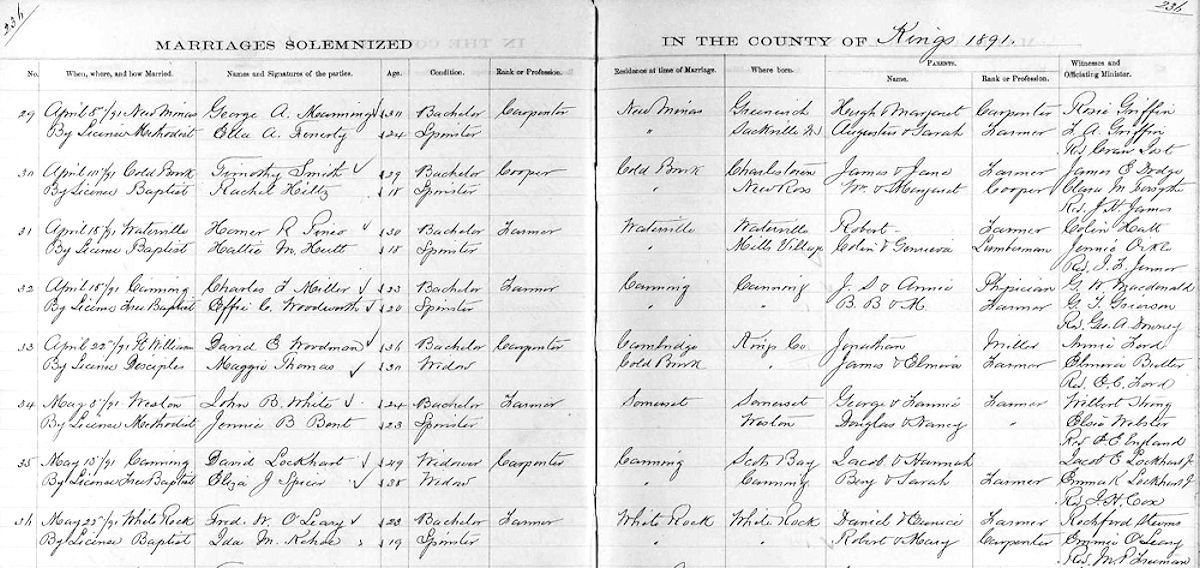 236 236
MARRIAGES SOLEMNIZED IN THE COUNTY OF Kings 1891.
No. When, where, and how Married. Names and Signatures of the parties. Age. Condition. Rank or Profession. Residence at time of Marriage. Where born. PARENTS. Name. Rank or Profession. Witnesses and Officiating Minister.
29 April 8"/91 New Minas George A. Manning Bachelor Carpenter New Minas Greenwich Hugh & Margaret Carpenter Rosie Griffin
By License Methodist Ella A. 24 Spinster " Sackville Augustus & Sarah Farmer L. A. Griffin
Rev
30 April Cold Brook Timothy Smith 29 Bachelor Cooper Cold Brook Charlestown James & Jane Farmer James E Dodge
By License Baptist Rachel Hiltz 18 Spinster " New Ross Wm. & Margaret Cooper Clara M. Forsythe
Rev. J. H. James
31 April 15"/91 Waterville Homer R Pineo 30 Bachelor Farmer Waterville Waterville Robert Farmer Colin Hatt
By License Baptist Hattie M. 18 Spinster " Mills Village Colin & Lumberman Jennie
Rev.
32 April 15"/91 Canning Charles F Miller 23 Bachelor Farmer Canning Canning J. S & Annie Physician G. W. Macdonald
By License Free Baptist Effie C. Woodworth 20 Spinster " " B. B & M. Farmer G. F. Grierson
Rev. Geo. A. Downey
33 April 22"/91 Pt William David E Woodman 36 Bachelor Carpenter Cambridge Kings Co. Jonathan Miller Annie Ford
By License Desciples Maggie Thomas 30 Widow Cold Brook " James & Elmira Farmer Elmira Butler
Rev. E. C. Ford
34 May 5"/91 Weston John B. White 24 Bachelor Farmer Somerset Somerset George & Fannie Farmer Wilbert
By License Methodist Jennie B Bent 23 Spinster Weston Douglas & Nancy " Elsie Webster
Rev P. E England
35 May 13"/91 Canning David Lockhart 49 Widower Carpenter Canning Scots Bay Jacob & Hannah Jacob E Lockhart Jr
By License Free Baptist Eliza J Spicer 38 Widow " Canning Benj & Sarah Farmer Emma K Lockhart
Rev. J. H. Cox
36 May 23"/91 White Rock Fred. W. O'Leary 23 Bachelor Farmer White Rock White Rock Daniel & Eunice Farmer Rochford Stevens
By License Baptist Ida M. Kehoe 19 Spinster " " Robert & Mary Carpenter Emmie O'Leary
Rev. M. P. Freeman